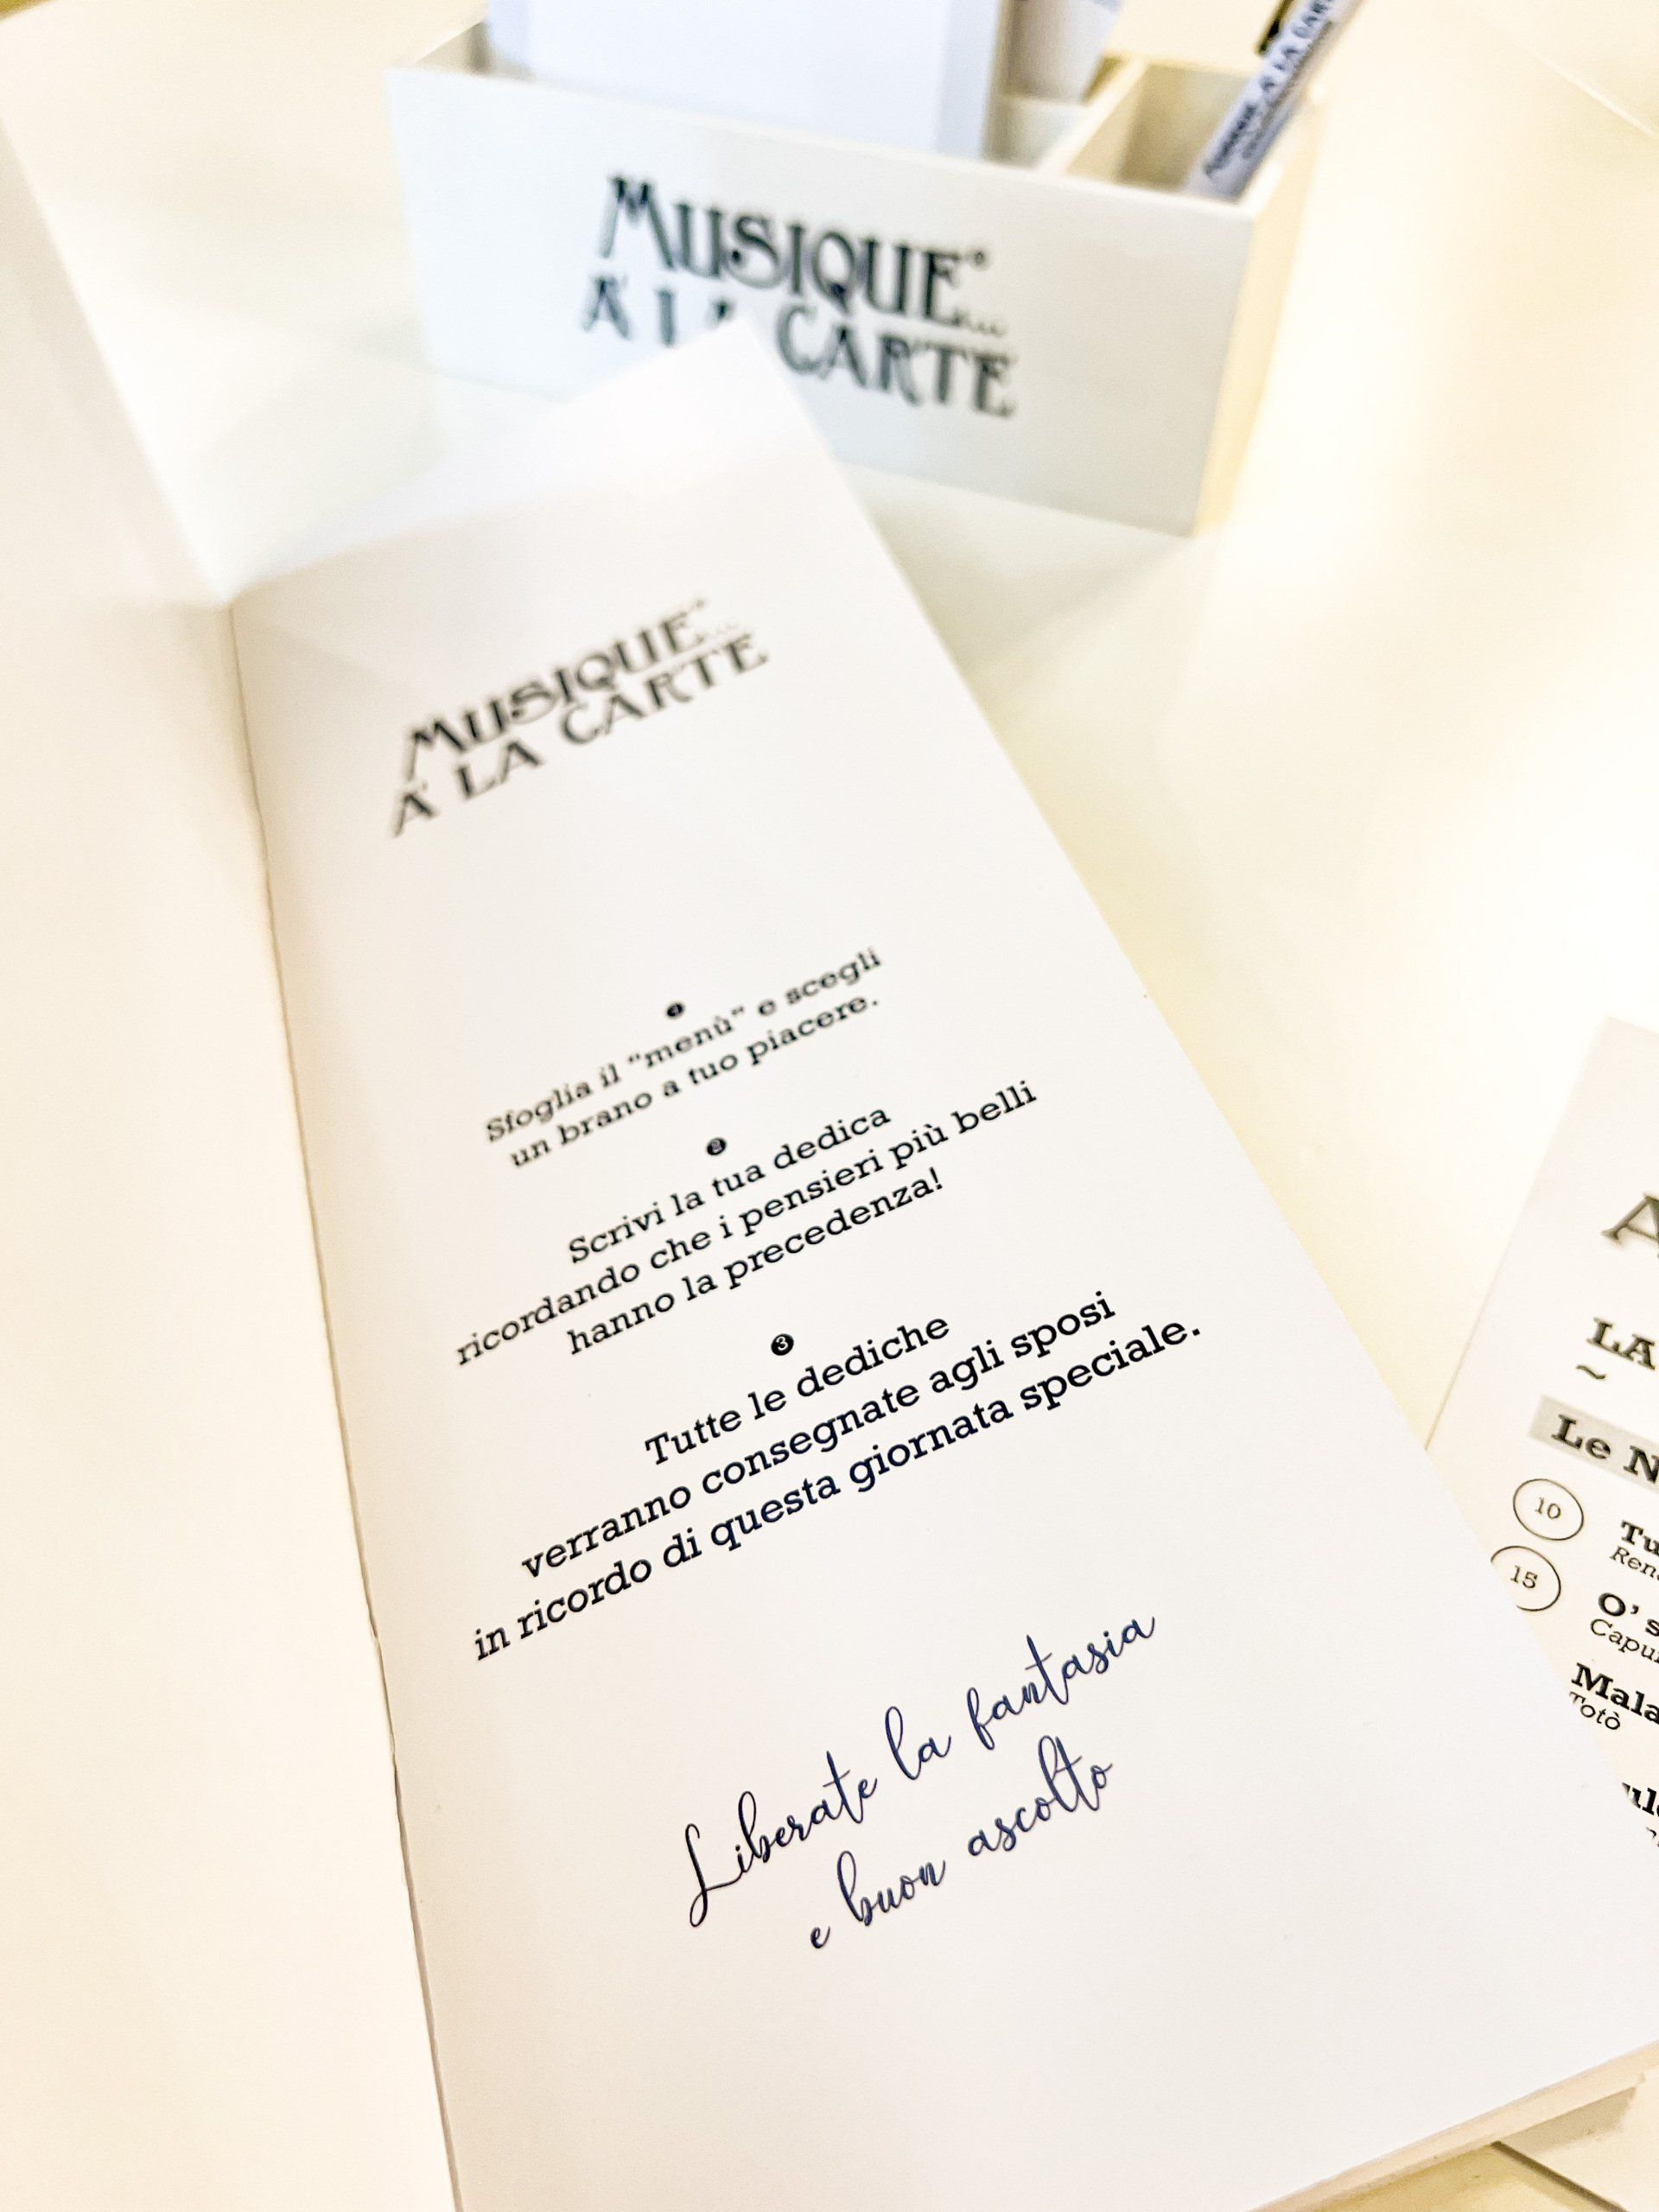 MUSIQUE...
À LA CARTE
MUSIQUE...
À LA CARTE
1
Sfoglia il "menù" e scegli
un brano a tuo piacere.
2
Scrivi la tua dedica
ricordando che i pensieri più belli
hanno la precedenza!
3
Tutte le dediche
verranno consegnate agli sposi
in ricordo di questa giornata speciale.
Liberate la fantasia
e buon ascolto
LA
~
Le N
10
Tu
15
O' s
Totò